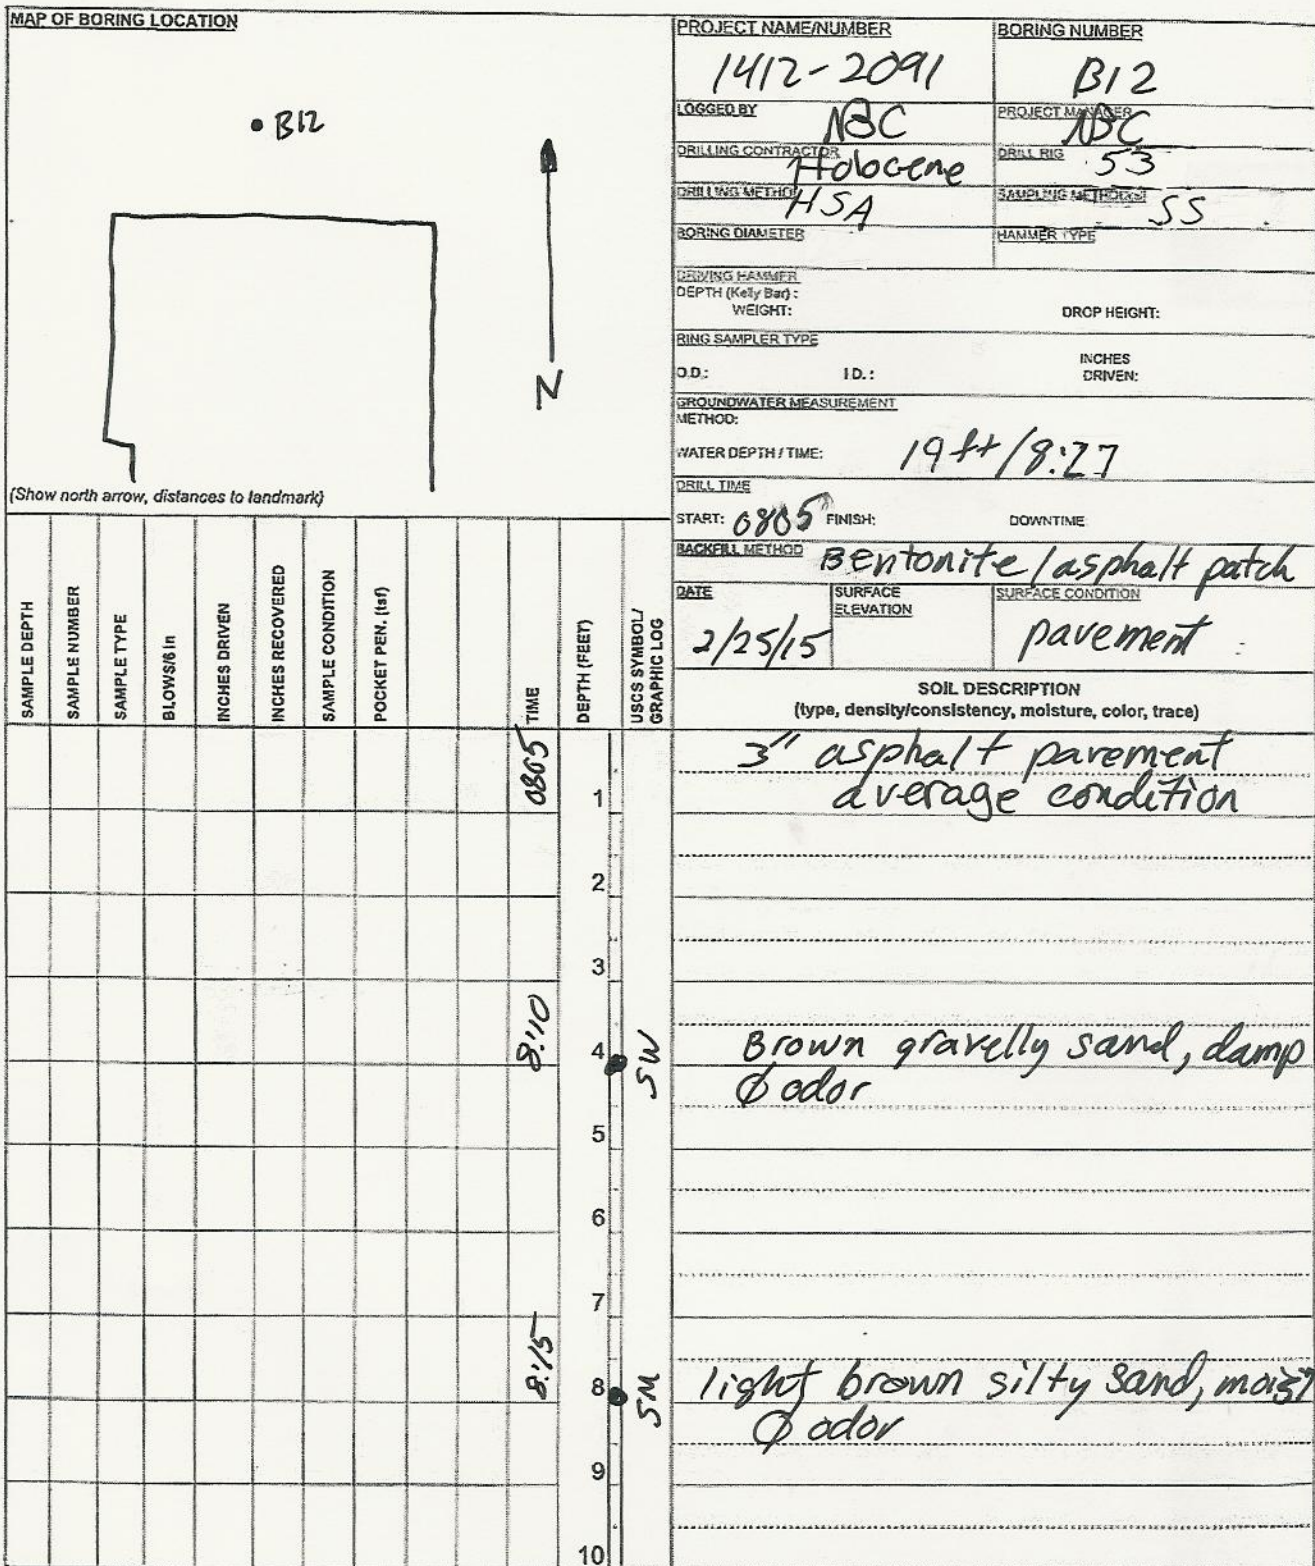 MAP OF BORING LOCATION
B12
N
(Show north arrow, distances to landmark)
PROJECT NAME/NUMBER
1412-2091
BORING NUMBER
B12
LOGGED BY
NBC
PROJECT MANAGER
NBC
DRILLING CONTRACTOR
Holocene
DRILL RIG
53
DRILLING METHOD
HSA
SAMPLING METHOD(S)
SS
BORING DIAMETER
HAMMER TYPE
DRIVING HAMMER
DEPTH (Kelly Bar) :
WEIGHT:
DROP HEIGHT:
RING SAMPLER TYPE
O.D.:
I.D.:
INCHES
DRIVEN:
GROUNDWATER MEASUREMENT
METHOD:
WATER DEPTH / TIME: 19 ft / 8:27
DRILL TIME
START: 0805 FINISH: DOWNTIME
BACKFILL METHOD Bentonite / asphalt patch
DATE
2/25/15
SURFACE
ELEVATION
SURFACE CONDITION
pavement
SAMPLE DEPTH
SAMPLE NUMBER
SAMPLE TYPE
BLOWS/6 in
INCHES DRIVEN
INCHES RECOVERED
SAMPLE CONDITION
POCKET PEN. (tsf)
TIME
DEPTH (FEET)
USCS SYMBOL/
GRAPHIC LOG
SOIL DESCRIPTION
(type, density/consistency, moisture, color, trace)
0805
3" asphalt pavement
1
average condition
2
3
8:10
4
SW
Brown gravelly sand, damp
Ø odor
5
6
7
8:15
8
SM
light brown silty sand, moist
Ø odor
9
10